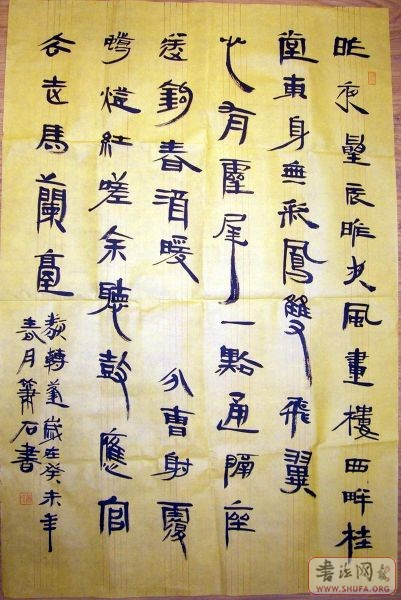 昨夜星辰昨夜風畫樓西畔桂
堂東身無彩鳳雙飛翼
心有靈犀一點通隔座
送鉤春酒暖分曹射覆
蠟燈紅嗟余聽鼓應官
去走馬蘭臺
類轉蓬歲在癸未年
春月蕭石書
书法网
WWW.SHUFA.ORG